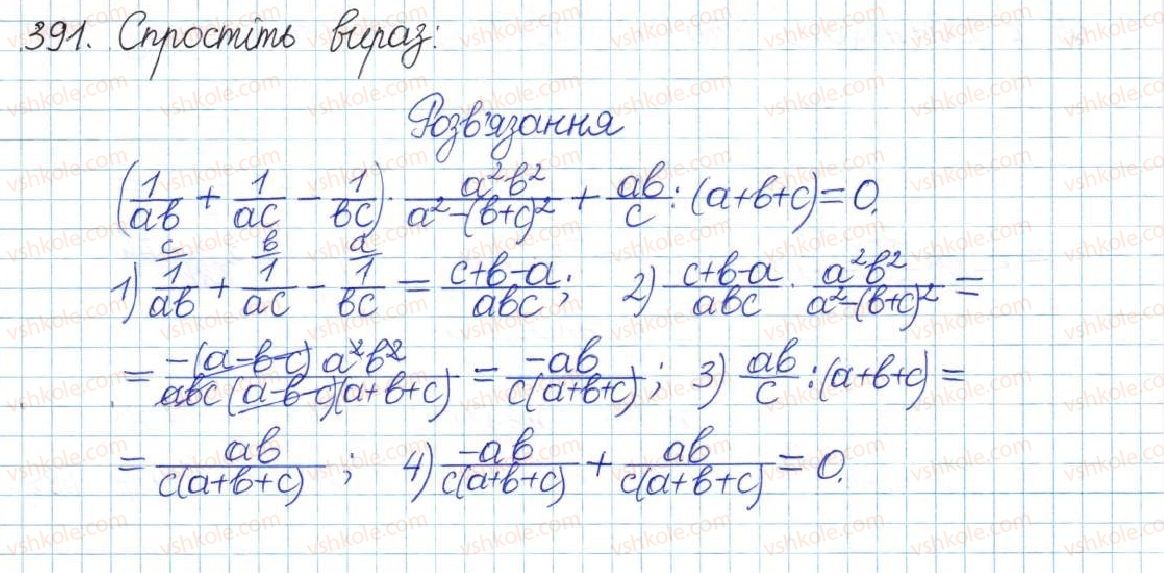 391. Спростіть вираз:
Розв'язання
(1/ab + 1/ac − 1/bc) · a²b²/(a²−(b+c)²) + ab/c : (a+b+c) = 0.
1) c/1/ab + b/1/ac − a/1/bc = (c+b−a)/abc; 2) (c+b−a)/abc · a²b²/(a²−(b+c)²) =
= −(a−b−c) a²b²/(abc(a−b−c)(a+b+c)) = −ab/(c(a+b+c)); 3) ab/c : (a+b+c) =
= ab/(c(a+b+c)); 4) −ab/(c(a+b+c)) + ab/(c(a+b+c)) = 0.